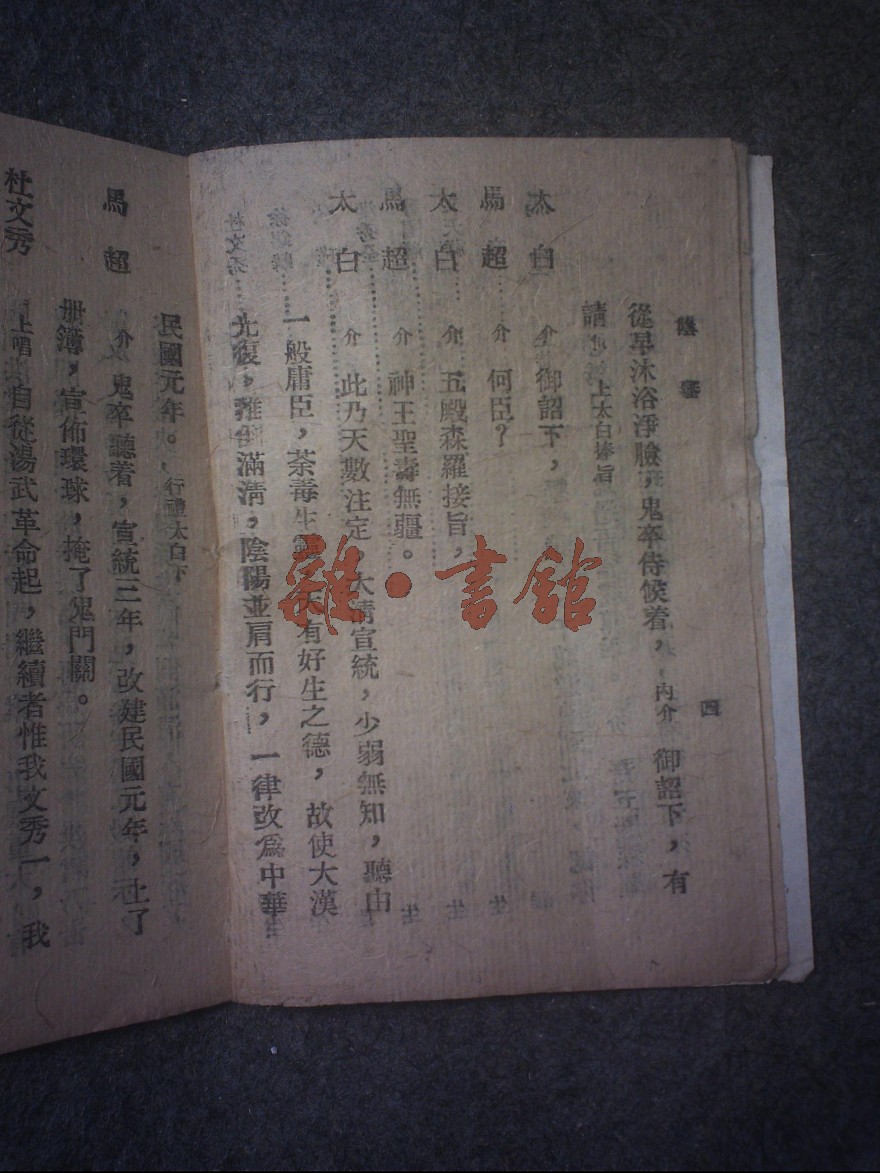 陰審
四
從早沐浴淨臉,鬼卒侍候着,內介 御詔下,有
請 上太白捧旨
太白 介 御詔下,
馬超 介 何臣?
太白 介 五殿森羅接旨,
馬超 介 神王聖壽無疆。
太白 介 此乃天數注定,大清宣統,少弱無知,聽由
一般庸臣,荼毒生 天有好生之德,故使大漢
光復,推倒滿清,陰陽並肩而行,一律改爲中華
民國元年。行禮太白下
馬超 介 鬼卒聽着,宣統三年,改建民國元年,
册簿,宣佈環球,掩了鬼門關。
杜文秀 上唱 自從湯武革命起,繼續者惟我文秀一,我
雜·書館